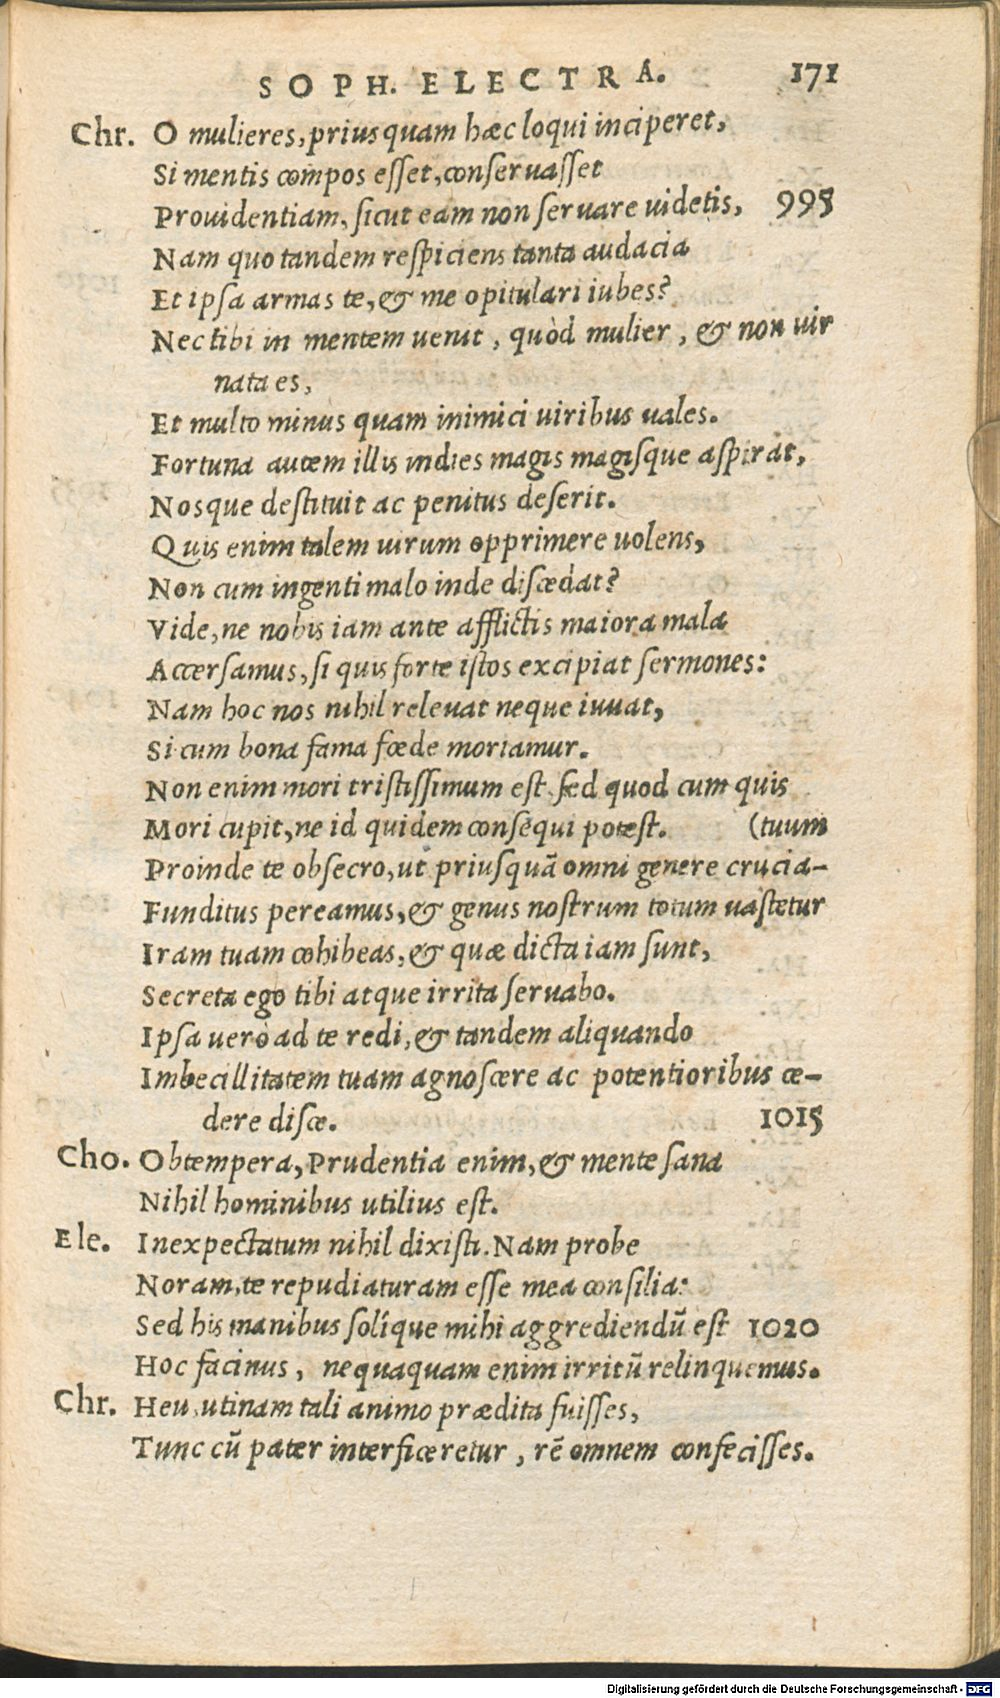 SOPH. ELECTRA. 171
Chr. O mulieres, prius quam hæc loqui inciperet,
Si mentis compos esset, conseruasset
Prouidentiam, sicut eam non seruare uidetis, 995
Nam quo tandem respiciens tanta audacia
Et ipsa armas te, & me opitulari iubes?
Nec tibi in mentem uenit, quòd mulier, & non uir
nata es,
Et multo minus quam inimici uiribus uales.
Fortuna autem illis indies magis magisque aspirat,
Nosque destituit ac penitus deserit.
Quis enim talem uirum opprimere uolens,
Non cum ingenti malo inde discedat?
Vide, ne nobis iam ante afflictis maiora mala
Accersamus, si quis forte istos excipiat sermones:
Nam hoc nos nihil releuat neque iuuat,
Si cum bona fama fœde moriamur.
Non enim mori tristissimum est, sed quod cum quis
Mori cupit, ne id quidem consequi potest. (tuum
Proinde te obsecro, ut priusquã omni genere crucia-
Funditus pereamus, & genus nostrum totum uastetur
Iram tuam cohibeas, & quæ dicta iam sunt,
Secreta ego tibi atque irrita seruabo.
Ipsa uero ad te redi, & tandem aliquando
Imbecillitatem tuam agnoscere ac potentioribus ce-
dere disce. 1015
Cho. Obtempera, Prudentia enim, & mente sana
Nihil hominibus utilius est.
Ele. Inexpectatum nihil dixisti. Nam probe
Noram, te repudiaturam esse mea consilia:
Sed his manibus solíque mihi aggrediendũ est 1020
Hoc facinus, nequaquam enim irritũ relinquemus.
Chr. Heu, utinam tali animo prædita fuisses,
Tunc cũ pater interficeretur, rẽ omnem confecisses.
Digitalisierung gefördert durch die Deutsche Forschungsgemeinschaft - DFG